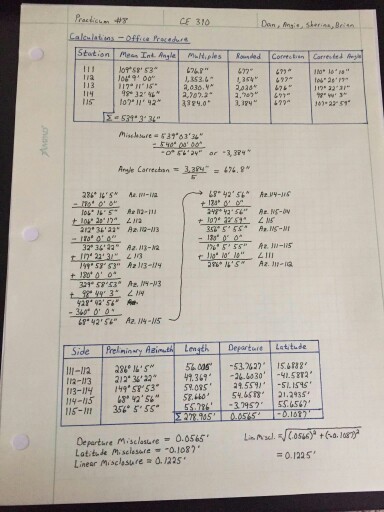 Practicum #8 CE 310 Dan, Angie, Sherina, Brian
Calculations - Office Procedure
Station Mean Int. Angle Multiples Rounded Correction Corrected Angle
111 109° 58' 53" 676.8" 677" 677" 110° 10' 10"
112 106° 9' 00" 1,353.6" 1,354" 677" 106° 20' 17"
113 117° 11' 15" 2,030.4" 2,030" 676" 117° 22' 31"
114 98° 32' 46" 2,707.2" 2,707" 677" 98° 44' 3"
115 107° 11' 42" 3,384.0" 3,384" 677" 107° 22' 59"
Σ = 539° 3' 36"
Misclosure = 539° 03' 36"
- 540° 00' 00"
-0° 56' 24" or -3,384"
Angle Correction = 3,384" / 5 = 676.8"
286° 16' 5" Az. 111-112
- 180° 0' 0"
106° 16' 5" Az 112-111
+ 106° 20' 17" ∠ 112
212° 36' 22" Az 112-113
- 180° 0' 0"
32° 36' 22" Az 113-112
+ 117° 22' 31" ∠ 113
149° 58' 53" Az 113-114
+ 180° 0' 0"
329° 58' 53" Az. 114-113
+ 98° 44' 3" ∠ 114
428° 42' 56"
- 360° 0' 0"
68° 42' 56" Az. 114-115
68° 42' 56" Az 114-115
+ 180° 0' 0"
248° 42' 56" Az. 115-114
+ 107° 22' 59" ∠ 115
356° 5' 55" Az. 115-111
- 180° 0' 0"
176° 5' 55" Az. 111-115
+ 110° 10' 10" ∠ 111
286° 16' 5" Az. 111-112
Side Preliminary Azimuth Length Departure Latitude
111-112 286° 16' 5" 56.005' -53.7627' 15.6888'
112-113 212° 36' 22" 49.369' -26.6030' -41.5882'
113-114 149° 58' 53" 59.085' 29.5591' -51.1595'
114-115 68° 42' 56" 58.660' 54.6588' 21.2935'
115-111 356° 5' 55" 55.786' -3.7957' 55.6567'
Σ 278.905' 0.0565' -0.1087'
Departure Misclosure = 0.0565'
Latitude Misclosure = -0.1087'
Linear Misclosure = 0.1225'
Lin. Miscl. = √(.0565)² + (-0.1087)²
= 0.1225'